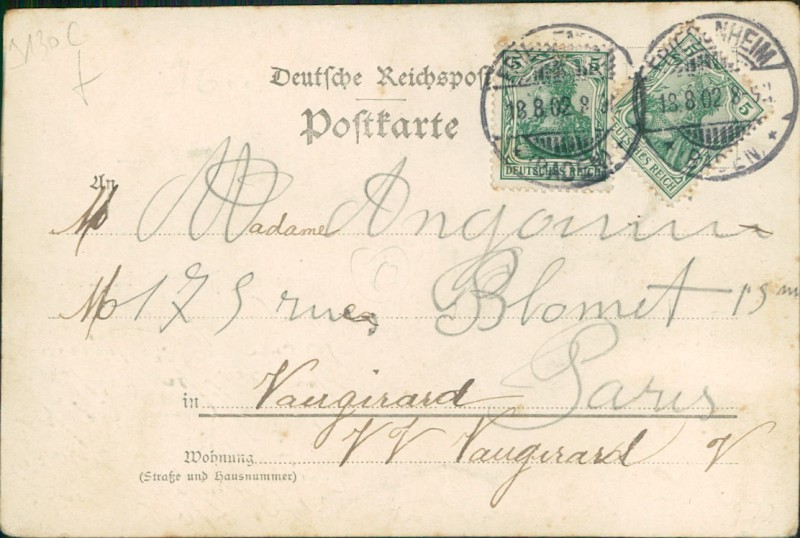 Deutsche Reichspost
Postkarte
5 5
DEUTSCHES REICH
18.8.02. 8
BADEN
5
DEUTSCHES REICH
FRIESENHEIM
18.8.02. 8
* BADEN. *
An
M Madame
175 rue Blomet 15
Paris
in Vaugirard
Vaugirard
Wohnung
(Straße und Hausnummer)